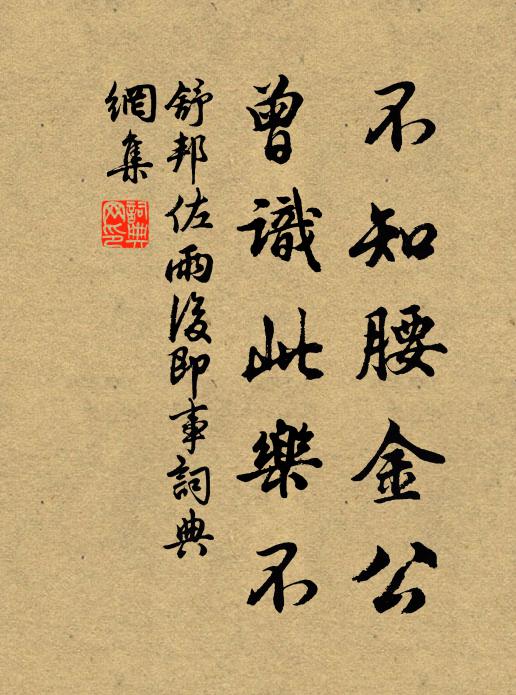 不知腰金公
曾識此樂不
舒邦佐雨後即事詞典
網集
詞典
网印